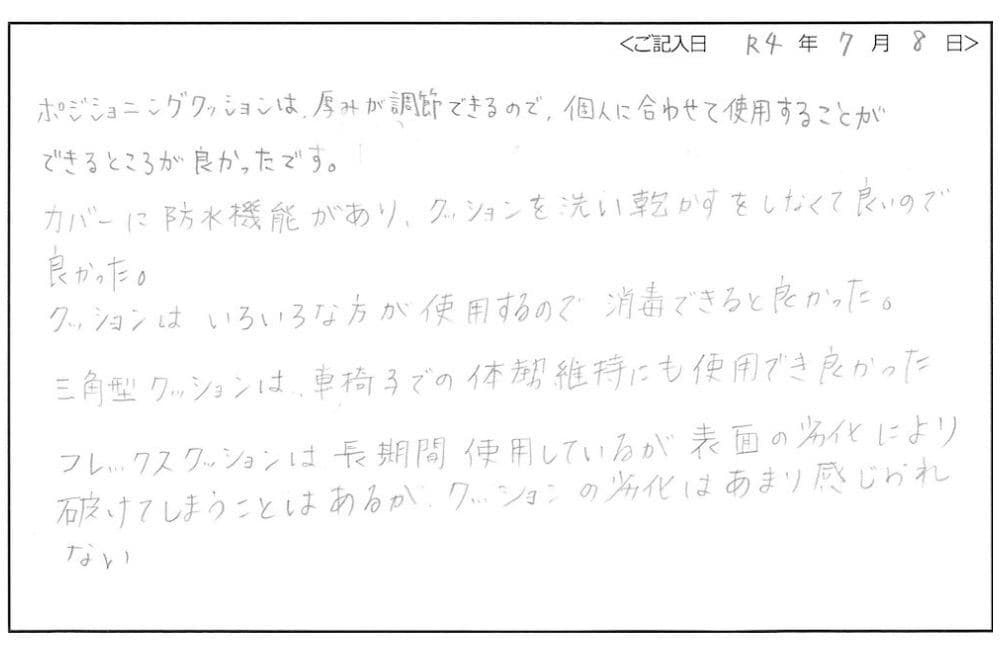 <ご記入日 R4年7月8日>
ポジショニングクッションは、厚みが調節できるので、個人に合わせて使用することが
できるところが良かったです。
カバーに防水機能があり、クッションを洗い乾かすをしなくて良いので
良かった。
クッションはいろいろな方が使用するので消毒できると良かった。
三角型クッションは、車椅子での体勢維持にも使用でき良かった
フレックスクッションは長期間使用しているが表面の劣化により
破けてしまうことはあるが、クッションの劣化はあまり感じられ
ない